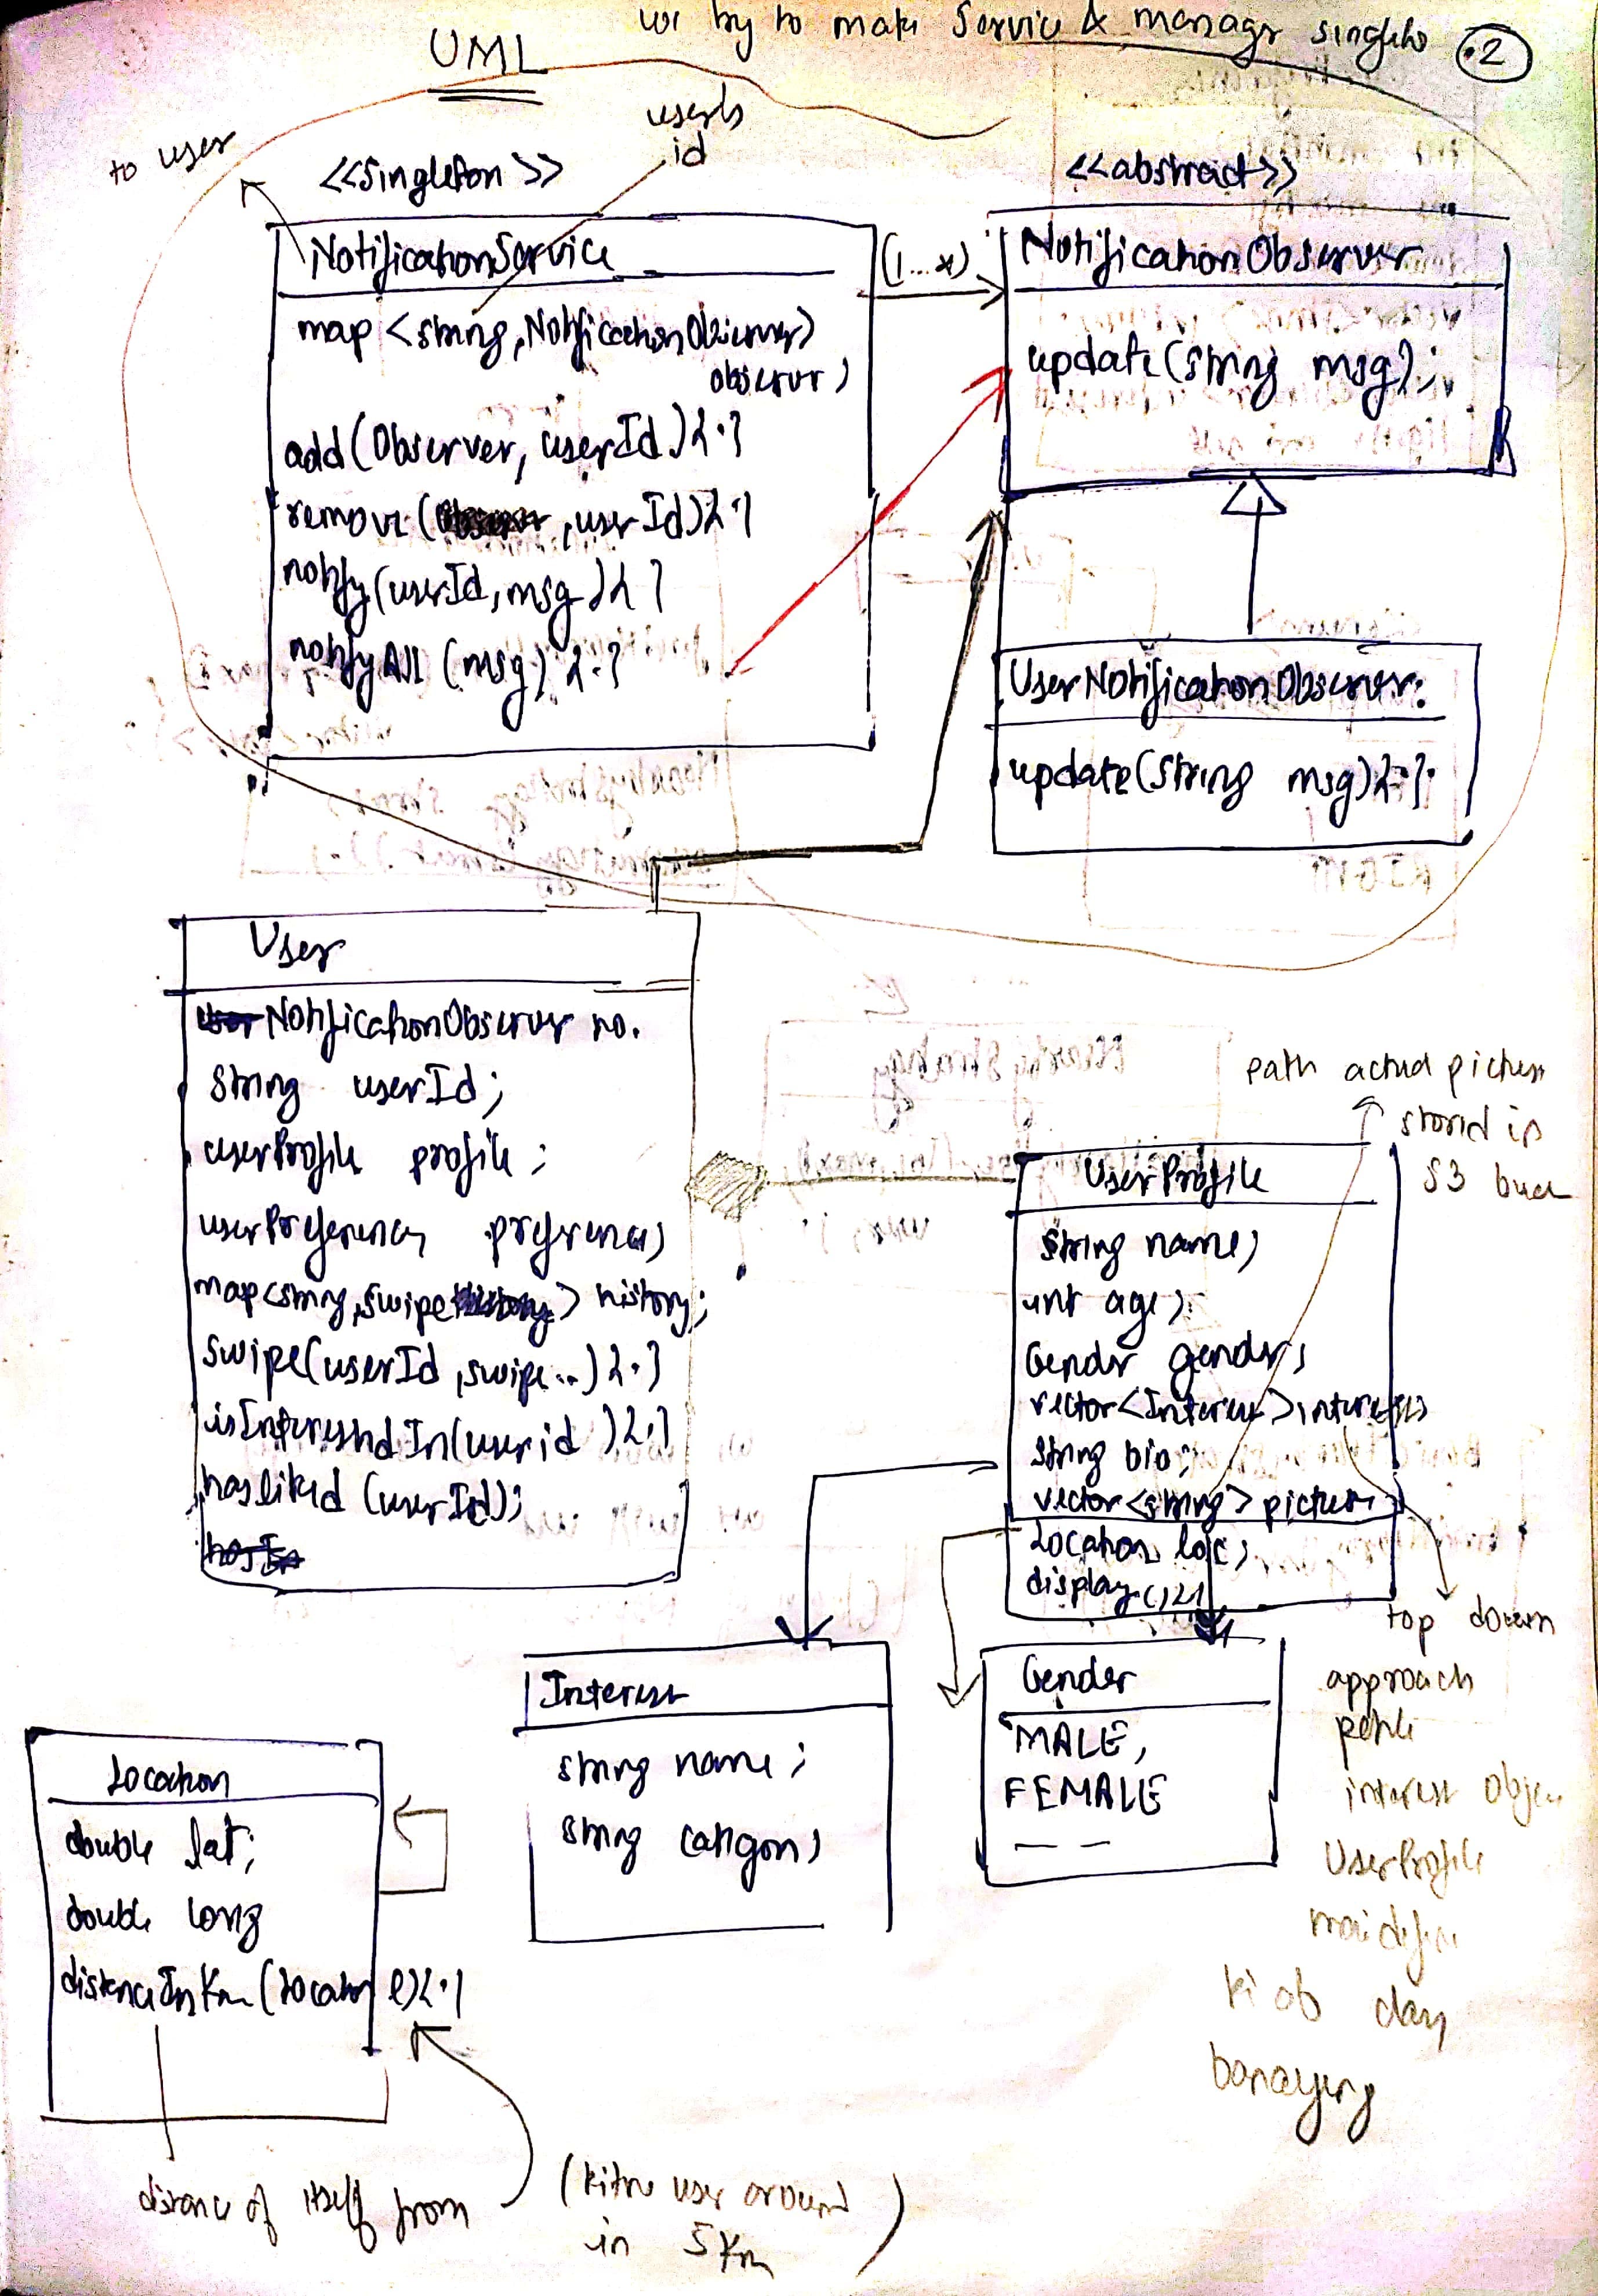 to make Service & manager
2
UML
to user
user's
id
<<singleton>>
<<abstract>>
NotificationService
map <string, NotificationObserver>
observer;
add(Observer, userId){.}
remove( , userId){.}
notify(userId, msg){ }
notifyAll (msg) {.}
(1...*)
NotificationObserver
update(string msg);
UserNotificationObserver:
update(string msg){.}.
User
NotificationObserver no.
string userId;
userProfile profile;
userPreference, preference;
map<string, swipe > history;
swipe(userId, swipe..){.}
isInterestedIn(userid){.}
hasliked (userId);
path actual picture
stored in
S3
UserProfile
string name;
int age;
Gender gender;
vector<Interest> interests
string bio;
vector<string> picture
Location loc;
display(){}
top down
approach
interest
UserProfile
ki ab
Interest
string name;
string category;
Gender
MALE,
FEMALE
— —
Location
double lat;
double long
distanceInKm (Location l){.}
distance of itself from
(kitne user around
in 5 Km )